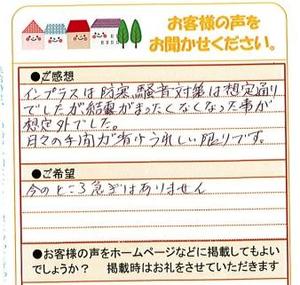 お客様の声を
お聞かせください。
●ご感想
インプラスは防寒、騒音対策は想定通り
でしたが結露がまったくなくなった事が
想定外でした。
日々の手間が省けうれしい限りです。
●ご希望
今のところ急ぎはありません
●お客様の声をホームページなどに掲載してもよい
でしょうか?　掲載時はお礼をさせていただきます